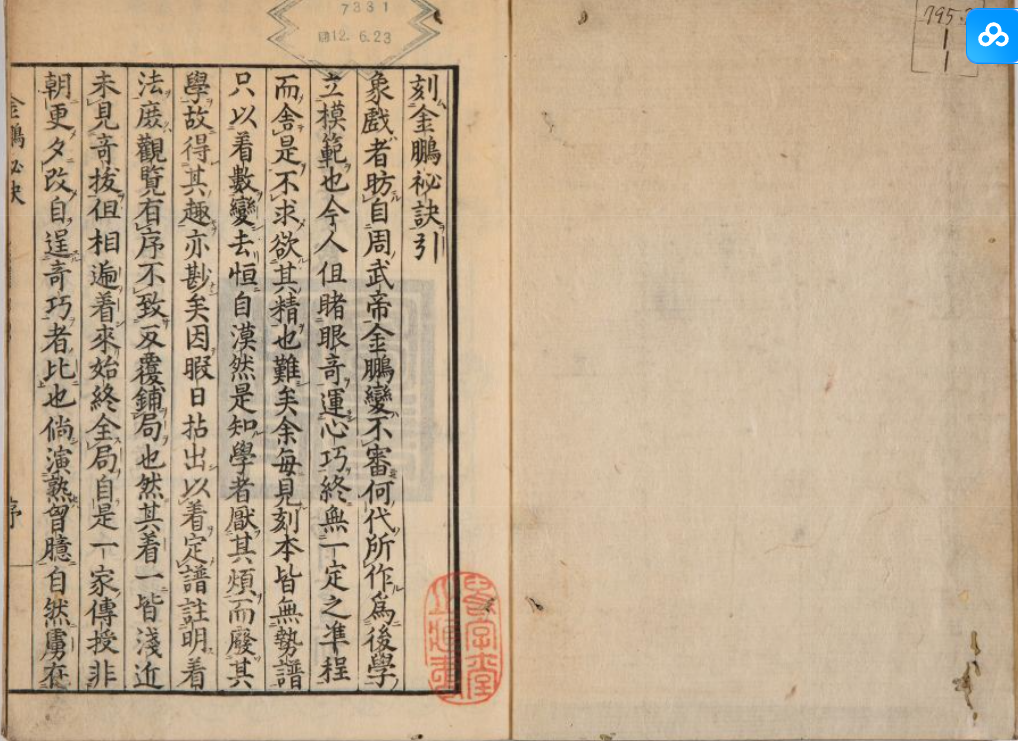 刻金鵬祕訣引
象戲者昉自周武帝金鵬變不審何代所作爲後學
立模範也今人但睹眼奇運心巧終無一定之準程
而舍是不求欲其精也難矣余每見刻本皆無勢譜
只以着數變去恒自漠然是知學者厭其煩而廢其
學故得其趣亦尠矣因暇日拈出以着定譜註明着
法庻觀覽有序不致反覆鋪局也然其着一皆淺近
未見奇拔但相遍着來始終全局自是一家傳授非
朝更夕改自逞奇巧者比也倘演熟曾臆自然雳在
金鵬祕訣
序
7331
12.6.23
795.
1
1